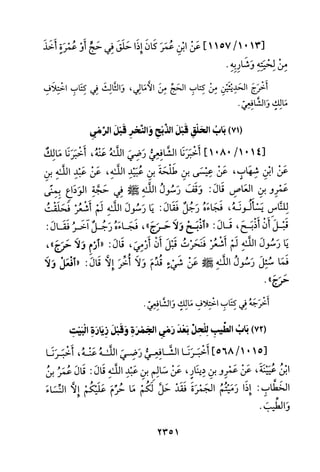 [١١٥٧/١٠١٣] عَنْ ابْنِ عُمَرَ كَانَ إِذَا حَلَقَ فِي حَجٍّ أَوْ عُمْرَةٍ أَخَذَ
مِنْ لِحْيَتِهِ وَشَارِبِهِ.
أَخْرَجَ الحَدِيثَيْنِ مِنْ كِتَابِ الحَجِّ مِنَ الأَمَالِي، وَالثَّالِثَ فِي كِتَابِ اخْتِلَافِ
مَالِكٍ وَالشَّافِعِيِّ.
(٧١) بَابُ الحَلْقِ قَبْلَ الذَّبْحِ وَالنَّحْرِ قَبْلَ الرَّمْيِ
[١٠٨٠/١٠١٤] أَخْبَرَنَا الشَّافِعِيُّ رَضِيَ اللَّـهُ عَنْهُ، أَخْبَرَنَا مَالِكٌ
عَنْ ابْنِ شِهَابٍ، عَنْ عِيْسَى بنِ طَلْحَةَ بنِ عُبَيْدِ اللَّـهِ، عَنْ عَبْدِ اللَّـهِ بنِ
عَمْرِو بنِ العَاصِ قَالَ: وَقَفَ رَسُولُ اللَّـهِ ﷺ فِي حَجَّةِ الوَدَاعِ بِمِنًى
لِلنَّاسِ يَسْأَلُـونَـهُ، فَجَاءَهُ رَجُلٌ فَقَالَ: يَا رَسُولَ اللَّـهِ لَمْ أَشْعُرْ فَحَلَقْتُ
قَبْـلَ أَنْ أَذْبَـحَ، قَـالَ: «اذْبَـحْ وَلَا حَـرَجَ»، فَجَـاءَهُ رَجُـلٌ آخَـرُ فَقَـالَ:
يَا رَسُولَ اللَّـهِ لَمْ أَشْعُرْ فَنَحَرْتُ قَبْلَ أَنْ أَرْمِيَ، قَالَ: «ارْمِ وَلَا حَرَجَ»،
فَمَا سُئِلَ رَسُولُ اللَّـهِ ﷺ عَنْ شَيْءٍ قُدِّمَ وَلَا أُخِّرَ إِلَّا قَالَ: «افْعَلْ وَلَا
حَرَجَ».
أَخْرَجَهُ فِي كِتَابِ اخْتِلَافِ مَالِكٍ وَالشَّافِعِيِّ.
(٧٢) بَابُ الطِّيبِ لِلْحِلِّ بَعْدَ رَمْيِ الجَمْرَةِ وَقَبْلَ زِيَارَةِ الْبَيْتِ
[٥٦٨/١٠١٥] أَخْبَـرَنَـا الشَّـافِعِـيُّ رَضِـيَ اللَّـهُ عَنْـهُ، أَخْبَـرَنَـا
ابْنُ عُيَيْنَةَ، عَنْ عَمْرِو بنِ دِينَارٍ، عَنْ سَالِمِ بنِ عَبْدِ اللَّـهِ قَالَ: قَالَ عُمَرُ بنُ
الخَطَّابِ: إِذَا رَمَيْتُمُ الجَمْرَةَ فَقَدْ حَلَّ لَكُمْ مَا حُرِّمَ عَلَيْكُمْ إِلَّا النِّسَاءَ
وَالطِّيبَ.
٢٣٥١